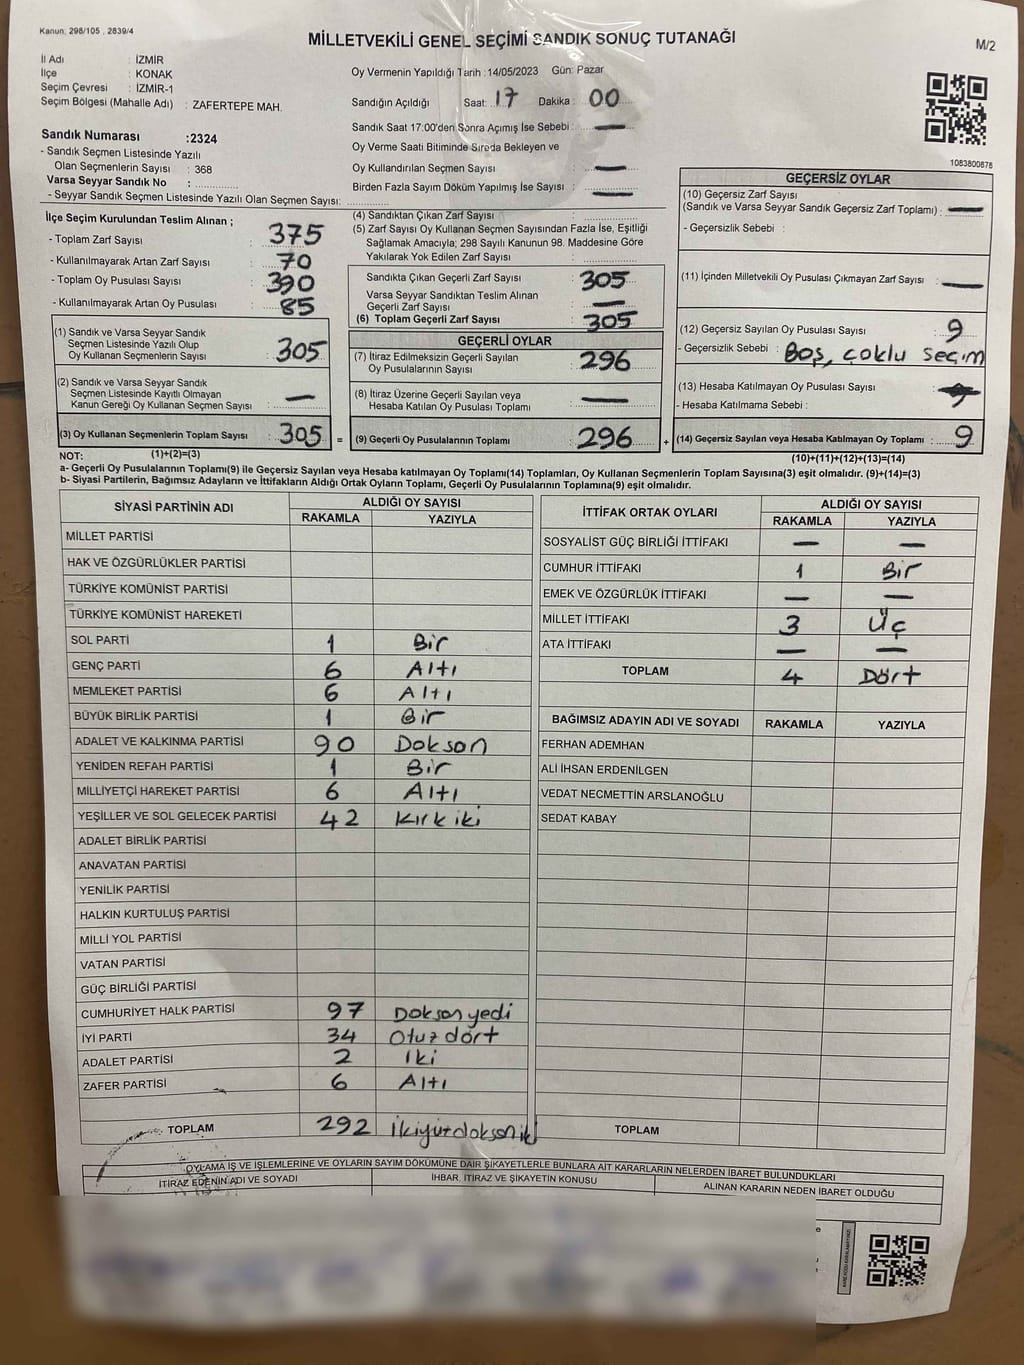 Kanun: 298/105 , 2839/4
MİLLETVEKİLİ GENEL SEÇİMİ SANDIK SONUÇ TUTANAĞI
M/2
İl Adı : İZMİR
İlçe : KONAK
Seçim Çevresi : İZMİR-1
Seçim Bölgesi (Mahalle Adı) : ZAFERTEPE MAH.
Sandık Numarası :2324
- Sandık Seçmen Listesinde Yazılı
Olan Seçmenlerin Sayısı : 368
Varsa Seyyar Sandık No :
- Seyyar Sandık Seçmen Listesinde Yazılı Olan Seçmen Sayısı:
Oy Vermenin Yapıldığı Tarih :14/05/2023 Gün: Pazar
Sandığın Açıldığı Saat: 17 Dakika : 00
Sandık Saat 17:00'den Sonra Açımış İse Sebebi : —
Oy Verme Saati Bitiminde Sırada Bekleyen ve
Oy Kullandırılan Seçmen Sayısı : —
Birden Fazla Sayım Döküm Yapılmış İse Sayısı : —
1083800878
İlçe Seçim Kurulundan Teslim Alınan ;
- Toplam Zarf Sayısı : 375
- Kullanılmayarak Artan Zarf Sayısı : 70
- Toplam Oy Pusulası Sayısı : 390
- Kullanılmayarak Artan Oy Pusulası : 85
(1) Sandık ve Varsa Seyyar Sandık
Seçmen Listesinde Yazılı Olup
Oy Kullanan Seçmenlerin Sayısı : 305
(2) Sandık ve Varsa Seyyar Sandık
Seçmen Listesinde Kayıtlı Olmayan
Kanun Gereği Oy Kullanan Seçmen Sayısı : —
(3) Oy Kullanan Seçmenlerin Toplam Sayısı : 305 =
(4) Sandıktan Çıkan Zarf Sayısı :
(5) Zarf Sayısı Oy Kullanan Seçmen Sayısından Fazla İse, Eşitliği
Sağlamak Amacıyla; 298 Sayılı Kanunun 98. Maddesine Göre
Yakılarak Yok Edilen Zarf Sayısı :
Sandıkta Çıkan Geçerli Zarf Sayısı : 305
Varsa Seyyar Sandıktan Teslim Alınan
Geçerli Zarf Sayısı : —
(6) Toplam Geçerli Zarf Sayısı : 305
GEÇERLİ OYLAR
(7) İtiraz Edilmeksizin Geçerli Sayılan
Oy Pusulalarının Sayısı : 296
(8) İtiraz Üzerine Geçerli Sayılan veya
Hesaba Katılan Oy Pusulası Toplamı : —
(9) Geçerli Oy Pusulalarının Toplamı : 296 +
GEÇERSİZ OYLAR
(10) Geçersiz Zarf Sayısı
(Sandık ve Varsa Seyyar Sandık Geçersiz Zarf Toplamı) : —
- Geçersizlik Sebebi :
(11) İçinden Milletvekili Oy Pusulası Çıkmayan Zarf Sayısı : —
(12) Geçersiz Sayılan Oy Pusulası Sayısı : 9
- Geçersizlik Sebebi : Boş, çoklu seçim
(13) Hesaba Katılmayan Oy Pusulası Sayısı :
- Hesaba Katılmama Sebebi :
(14) Geçersiz Sayılan veya Hesaba Katılmayan Oy Toplamı : 9
NOT: (1)+(2)=(3)
(10)+(11)+(12)+(13)=(14)
a- Geçerli Oy Pusulalarının Toplamı(9) ile Geçersiz Sayılan veya Hesaba katılmayan Oy Toplamı(14) Toplamları, Oy Kullanan Seçmenlerin Toplam Sayısına(3) eşit olmalıdır. (9)+(14)=(3)
b- Siyasi Partilerin, Bağımsız Adayların ve İttifakların Aldığı Ortak Oyların Toplamı, Geçerli Oy Pusulalarının Toplamına(9) eşit olmalıdır.
SİYASİ PARTİNİN ADI ALDIĞI OY SAYISI
RAKAMLA YAZIYLA
MİLLET PARTİSİ
HAK VE ÖZGÜRLÜKLER PARTİSİ
TÜRKİYE KOMÜNİST PARTİSİ
TÜRKİYE KOMÜNİST HAREKETİ
SOL PARTİ 1 Bir
GENÇ PARTİ 6 Altı
MEMLEKET PARTİSİ 6 Altı
BÜYÜK BİRLİK PARTİSİ 1 Bir
ADALET VE KALKINMA PARTİSİ 90 Dokson
YENİDEN REFAH PARTİSİ 1 Bir
MİLLİYETÇİ HAREKET PARTİSİ 6 Altı
YEŞİLLER VE SOL GELECEK PARTİSİ 42 Kırk iki
ADALET BİRLİK PARTİSİ
ANAVATAN PARTİSİ
YENİLİK PARTİSİ
HALKIN KURTULUŞ PARTİSİ
MİLLİ YOL PARTİSİ
VATAN PARTİSİ
GÜÇ BİRLİĞİ PARTİSİ
CUMHURİYET HALK PARTİSİ 97 Doksan yedi
İYİ PARTİ 34 Otuz dört
ADALET PARTİSİ 2 İki
ZAFER PARTİSİ 6 Altı
TOPLAM 292 İkiyüzdoksaniki
İTTİFAK ORTAK OYLARI ALDIĞI OY SAYISI
RAKAMLA YAZIYLA
SOSYALİST GÜÇ BİRLİĞİ İTTİFAKI — —
CUMHUR İTTİFAKI 1 Bir
EMEK VE ÖZGÜRLÜK İTTİFAKI — —
MİLLET İTTİFAKI 3 Üç
ATA İTTİFAKI — —
TOPLAM 4 Dört
BAĞIMSIZ ADAYIN ADI VE SOYADI RAKAMLA YAZIYLA
FERHAN ADEMHAN
ALİ İHSAN ERDENİLGEN
VEDAT NECMETTİN ARSLANOĞLU
SEDAT KABAY
TOPLAM
OYLAMA İŞ VE İŞLEMLERİNE VE OYLARIN SAYIM DÖKÜMÜNE DAİR ŞİKAYETLERLE BUNLARA AİT KARARLARIN NELERDEN İBARET BULUNDUKLARI
İTİRAZ EDENİN ADI VE SOYADI İHBAR, İTİRAZ VE ŞİKAYETİN KONUSU ALINAN KARARIN NEDEN İBARET OLDUĞU